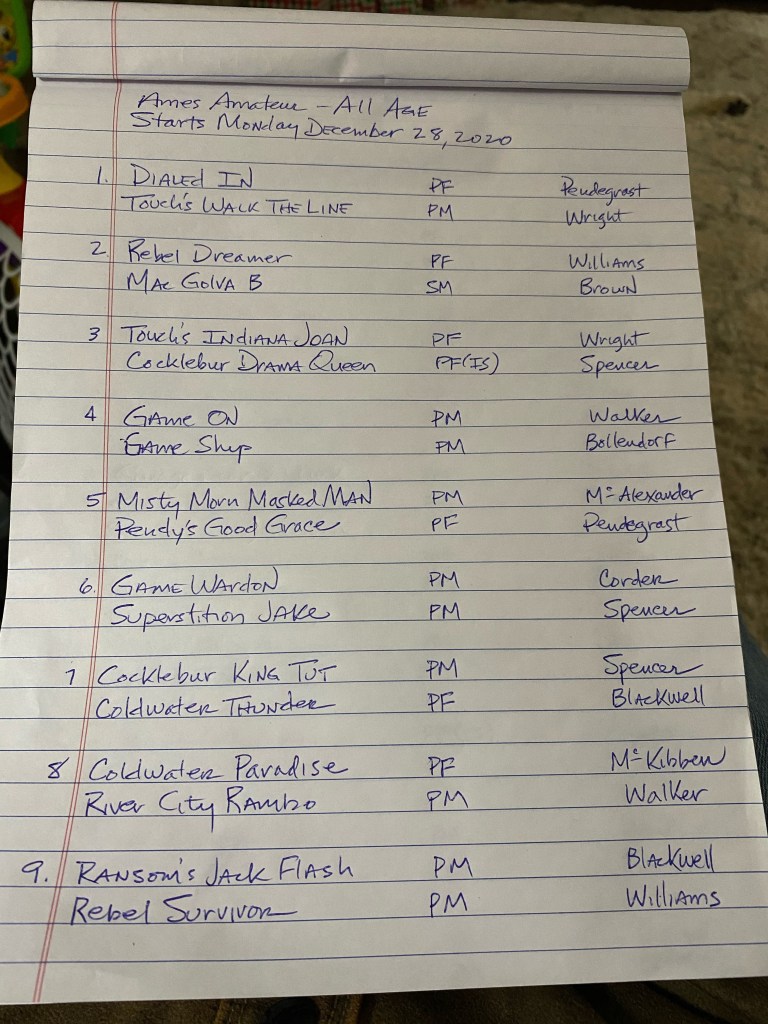 Ames Amateur - All Age
Starts Monday December 28, 2020
1. Dialed In PF Pendegrast
Touch's Walk The Line PM Wright
2. Rebel Dreamer PF Williams
Mac Golva B SM Brown
3 Touch's Indiana Joan PF Wright
Cocklebur Drama Queen PF(IS) Spencer
4 Game On PM Walker
Game Shup PM Bollendorf
5 Misty Morn Masked Man PM Mc Alexander
Pendy's Good Grace PF Pendegrast
6. Game Wardon PM Corder
Superstition Jake PM Spencer
7 Cocklebur King Tut PM Spencer
Coldwater Thunder PF Blackwell
8 Coldwater Paradise PF Mc Kibben
River City Rambo PM Walker
9. Ransom's Jack Flash PM Blackwell
Rebel Survivor PM Williams